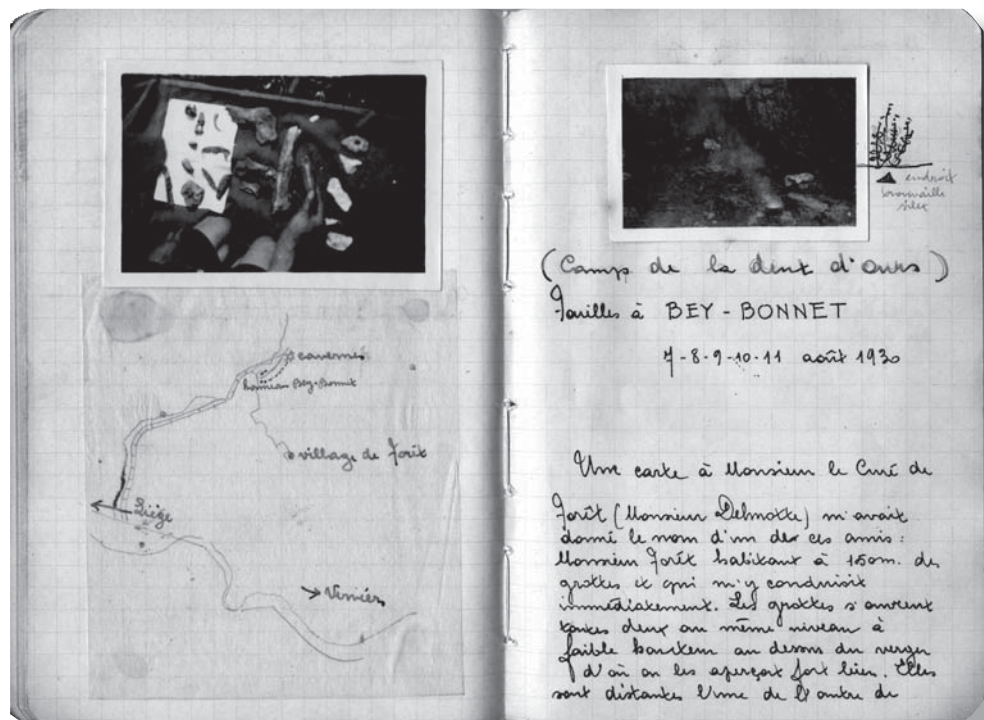 cavernes
hameau Bey-Bonnet
village de Forêt
Liège
→ Verviers
endroit
broussaille
silex
(Camp de la dent d'Ours)
Fouilles à BEY - BONNET
7-8-9-10-11 août 1930
Une carte à Monsieur le Curé de
Forêt (Monsieur Delmotte) m'avait
donné le nom d'un der ces amis :
Monsieur Forêt habitant à 150m. des
grottes et qui m'y conduisit
immédiatement. Les grottes s'ouvrent
toutes deux au même niveau à
faible hauteur au dessus du verger
d'où on les aperçoit fort bien. Elles
sont distantes l'une de l'autre de